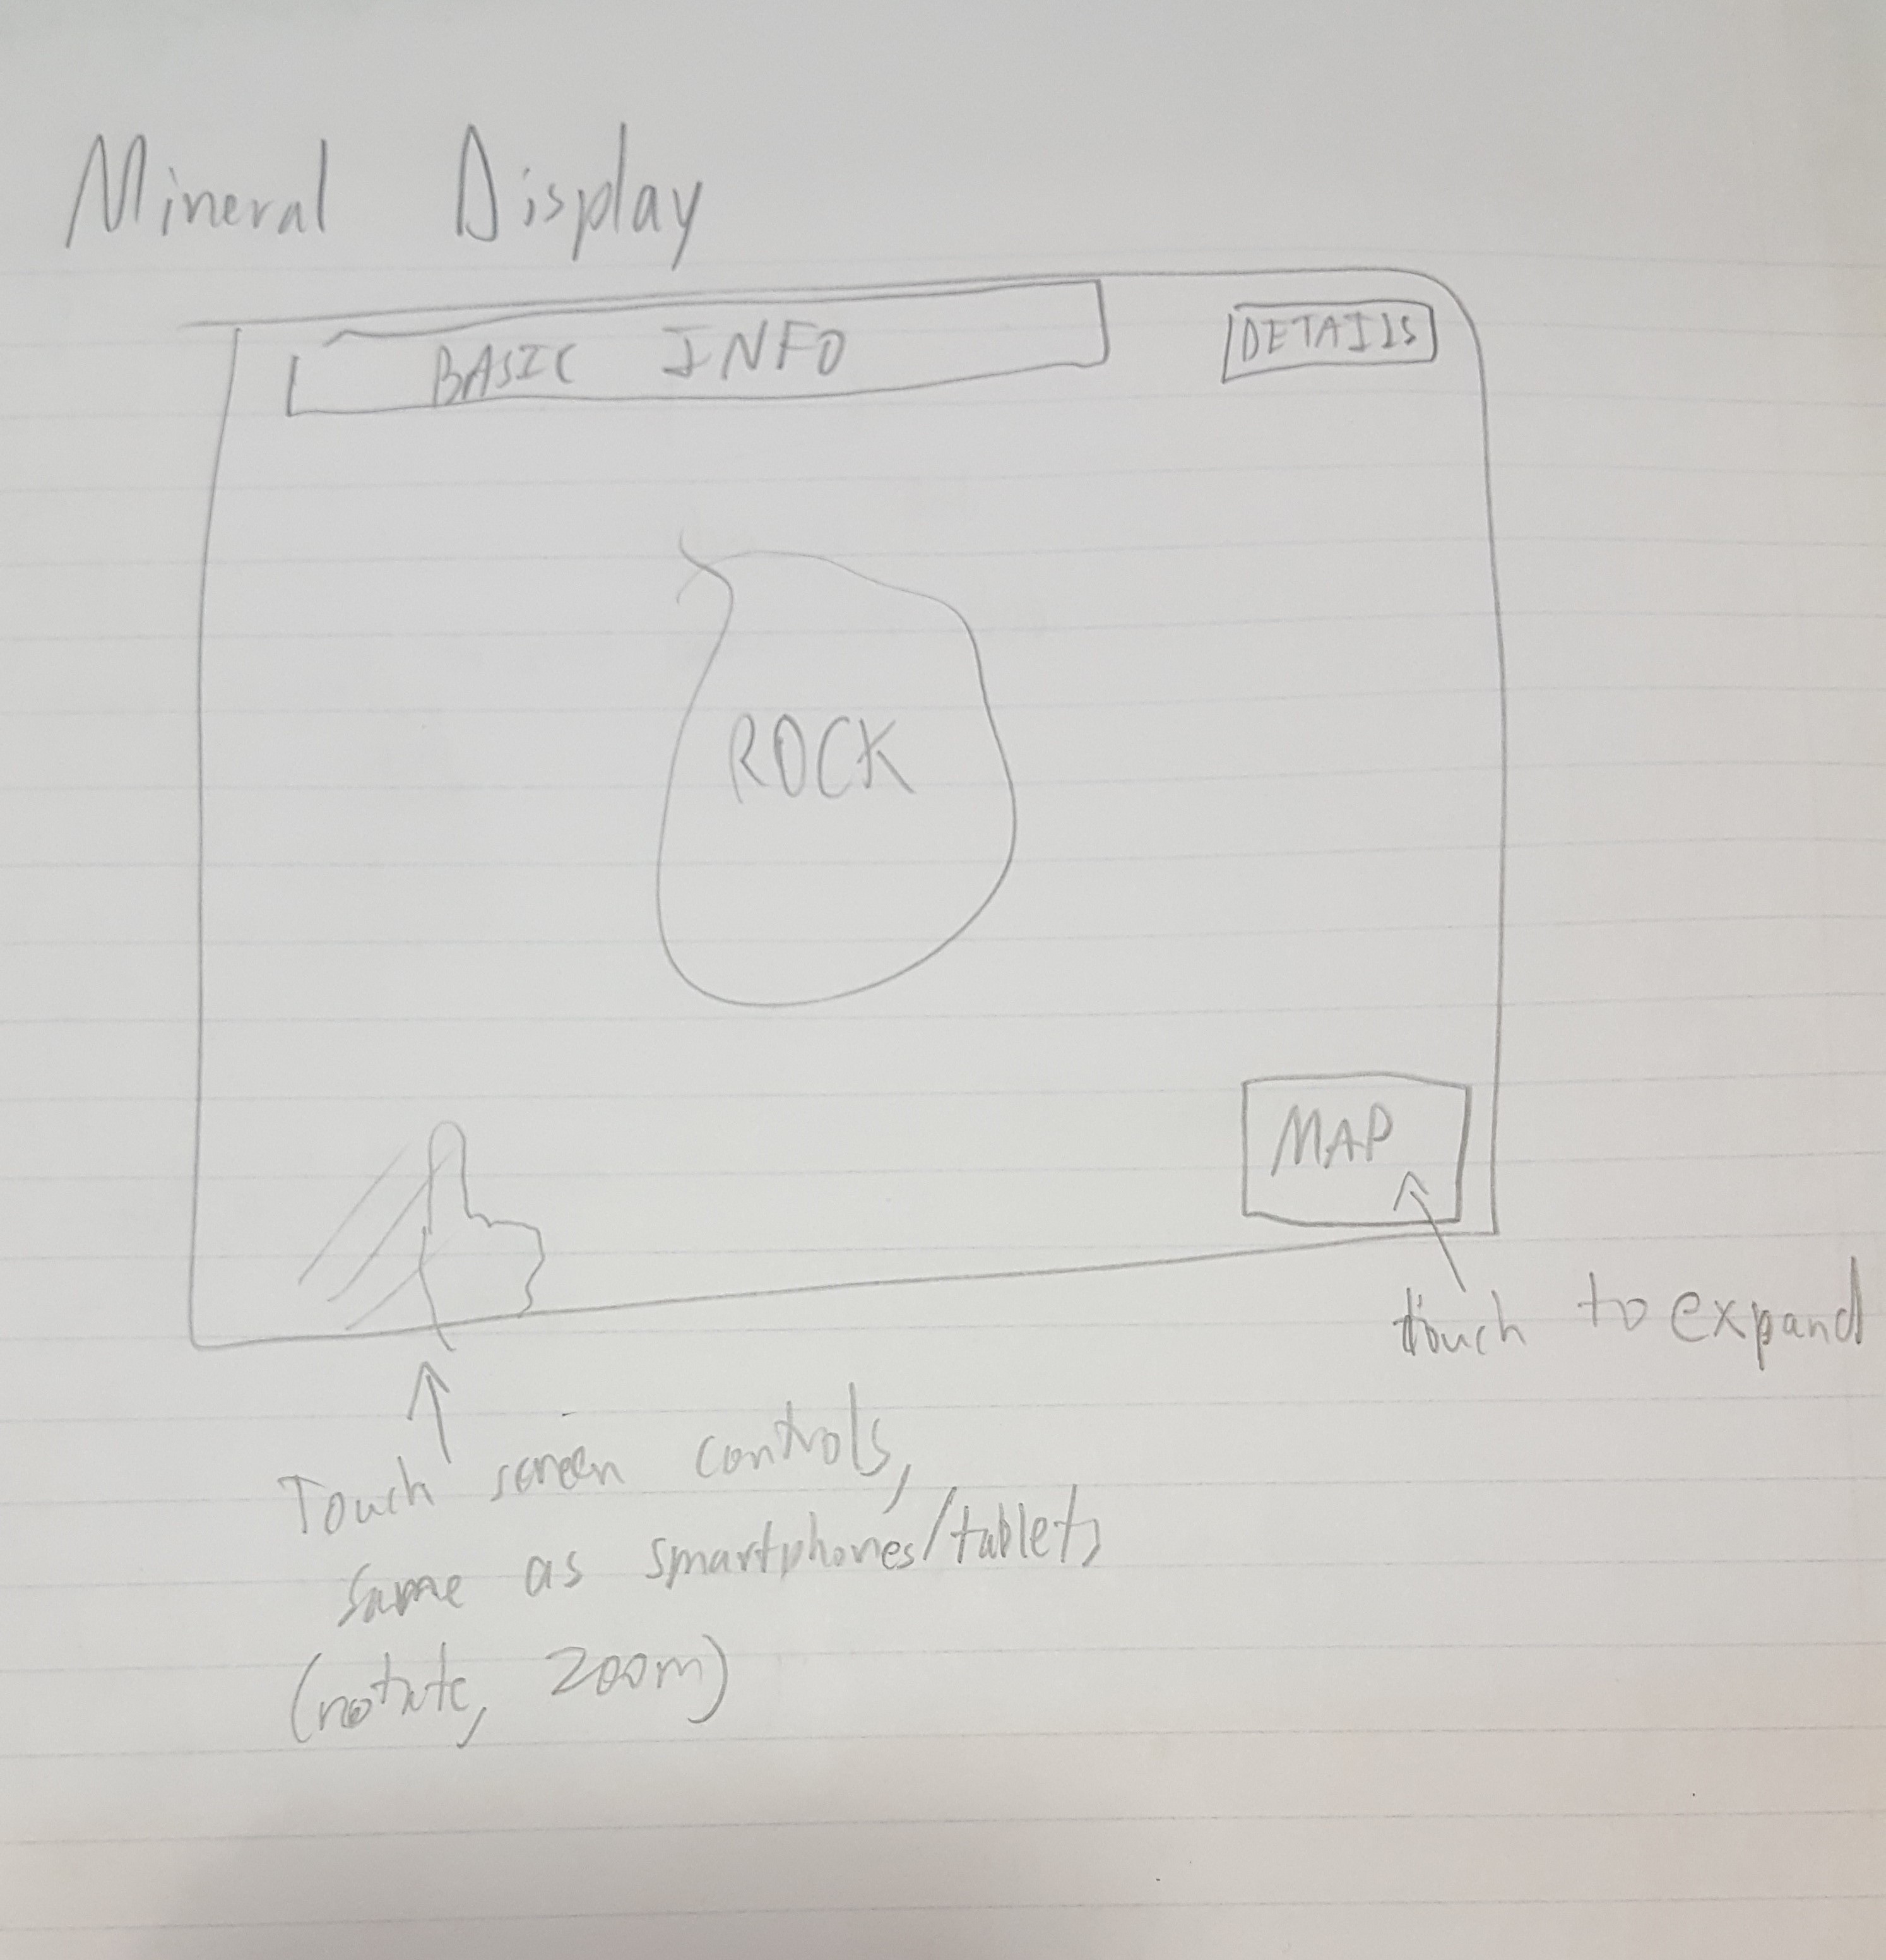 Mineral Display
BASIC INFO
DETAILS
ROCK
MAP
touch to expand
Touch screen controls,
same as smartphones/tablets
(rotate, zoom)